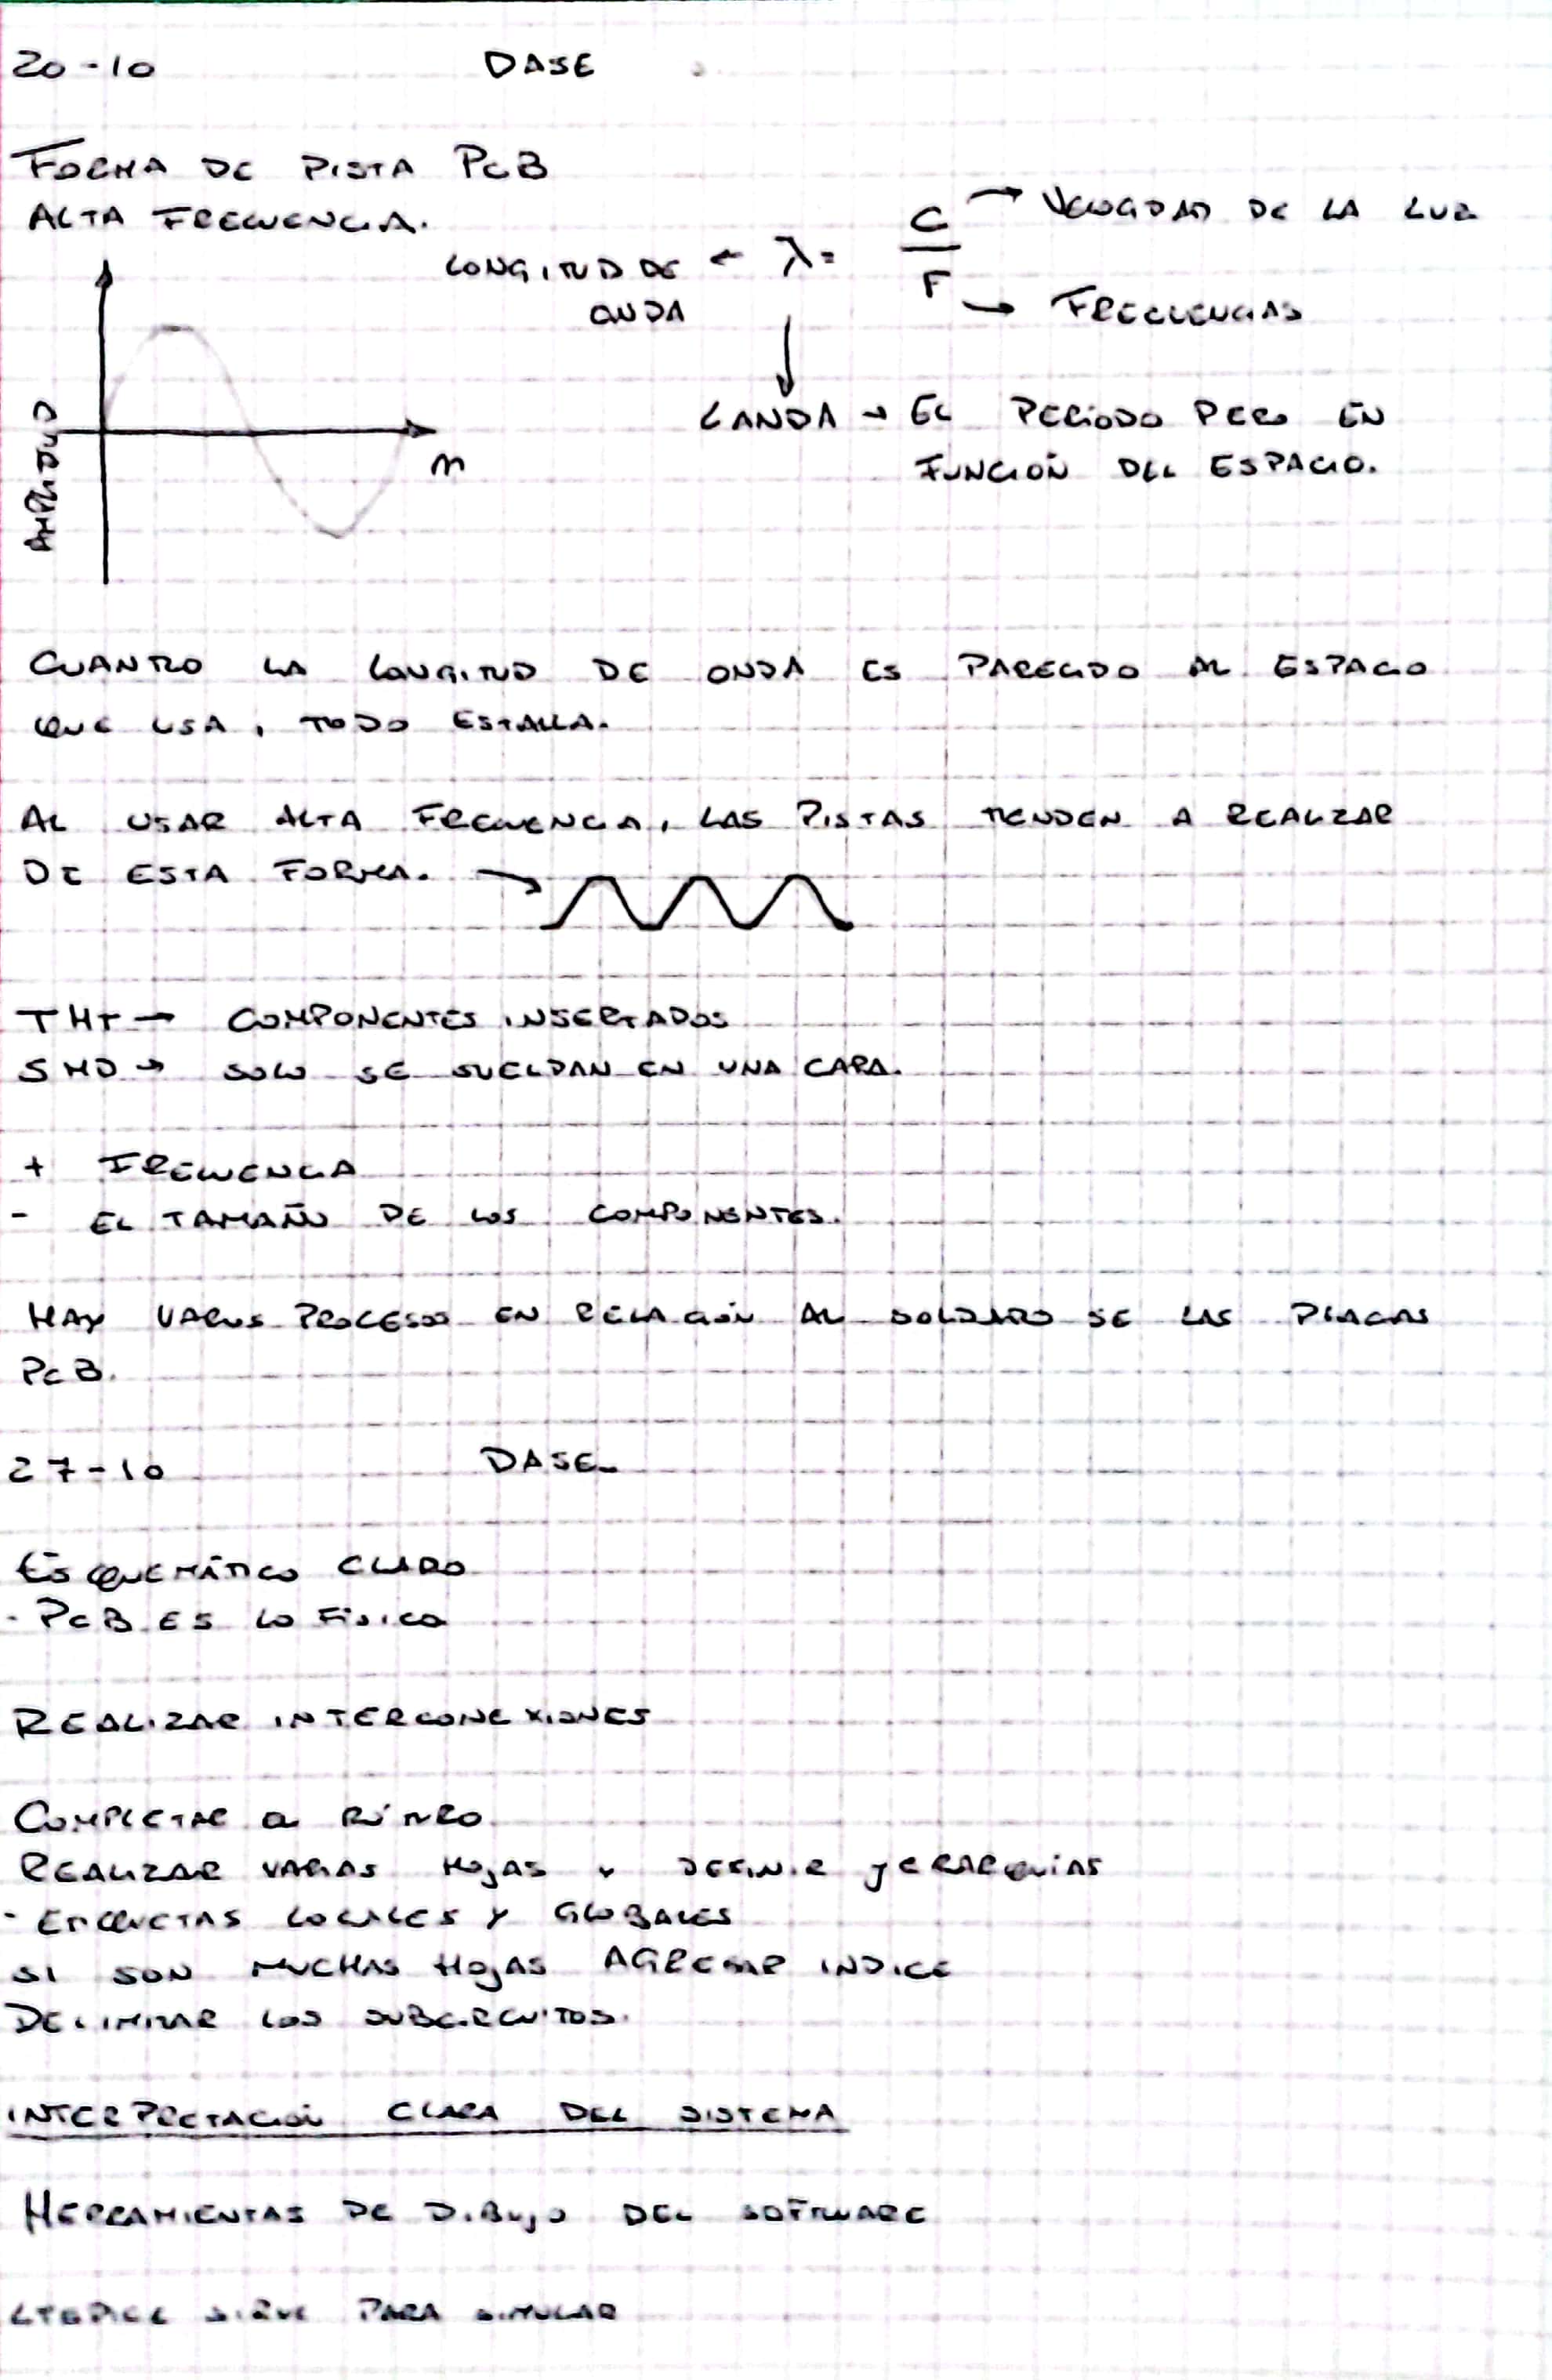 20-10 DASE
FORMA DE PISTA PCB
ALTA FRECUENCIA.
C → VELOCIDAD DE LA LUZ
LONGITUD DE ← λ =
ONDA
F → FRECUENCIAS
LANDA → EL PERÍODO PERO EN
FUNCIÓN DEL ESPACIO.
AMPLITUD
m
CUANTO LA LONGITUD DE ONDA ES PARECIDO AL ESPACIO
QUE USA, TODO ESTALLA.
AL USAR ALTA FRECUENCIA, LAS PISTAS TIENDEN A REALIZAR
DE ESTA FORMA. →
THT → COMPONENTES INSERTADOS
SMD → SOLO SE SUELDAN EN UNA CARA.
+ FRECUENCIA
- EL TAMAÑO DE LOS COMPONENTES.
HAY VARIOS PROCESOS EN RELACIÓN AL SOLDADO SE LAS PLACAS
PCB.
27-10 DASE
ESQUEMÁTICO CLARO
- PCB ES LO FÍSICO
REALIZAR INTERCONEXIONES
COMPLETAR EL RÓTULO
REALIZAR VARIAS HOJAS Y DEFINIR JERARQUÍAS
- ETIQUETAS LOCALES Y GLOBALES
SI SON MUCHAS HOJAS AGREGAR INDICE
DELIMITAR LOS SUBCIRCUITOS.
INTERPRETACIÓN CLARA DEL SISTEMA
HERRAMIENTAS DE DIBUJO DEL SOFTWARE
LTSPICE SIRVE PARA SIMULAR